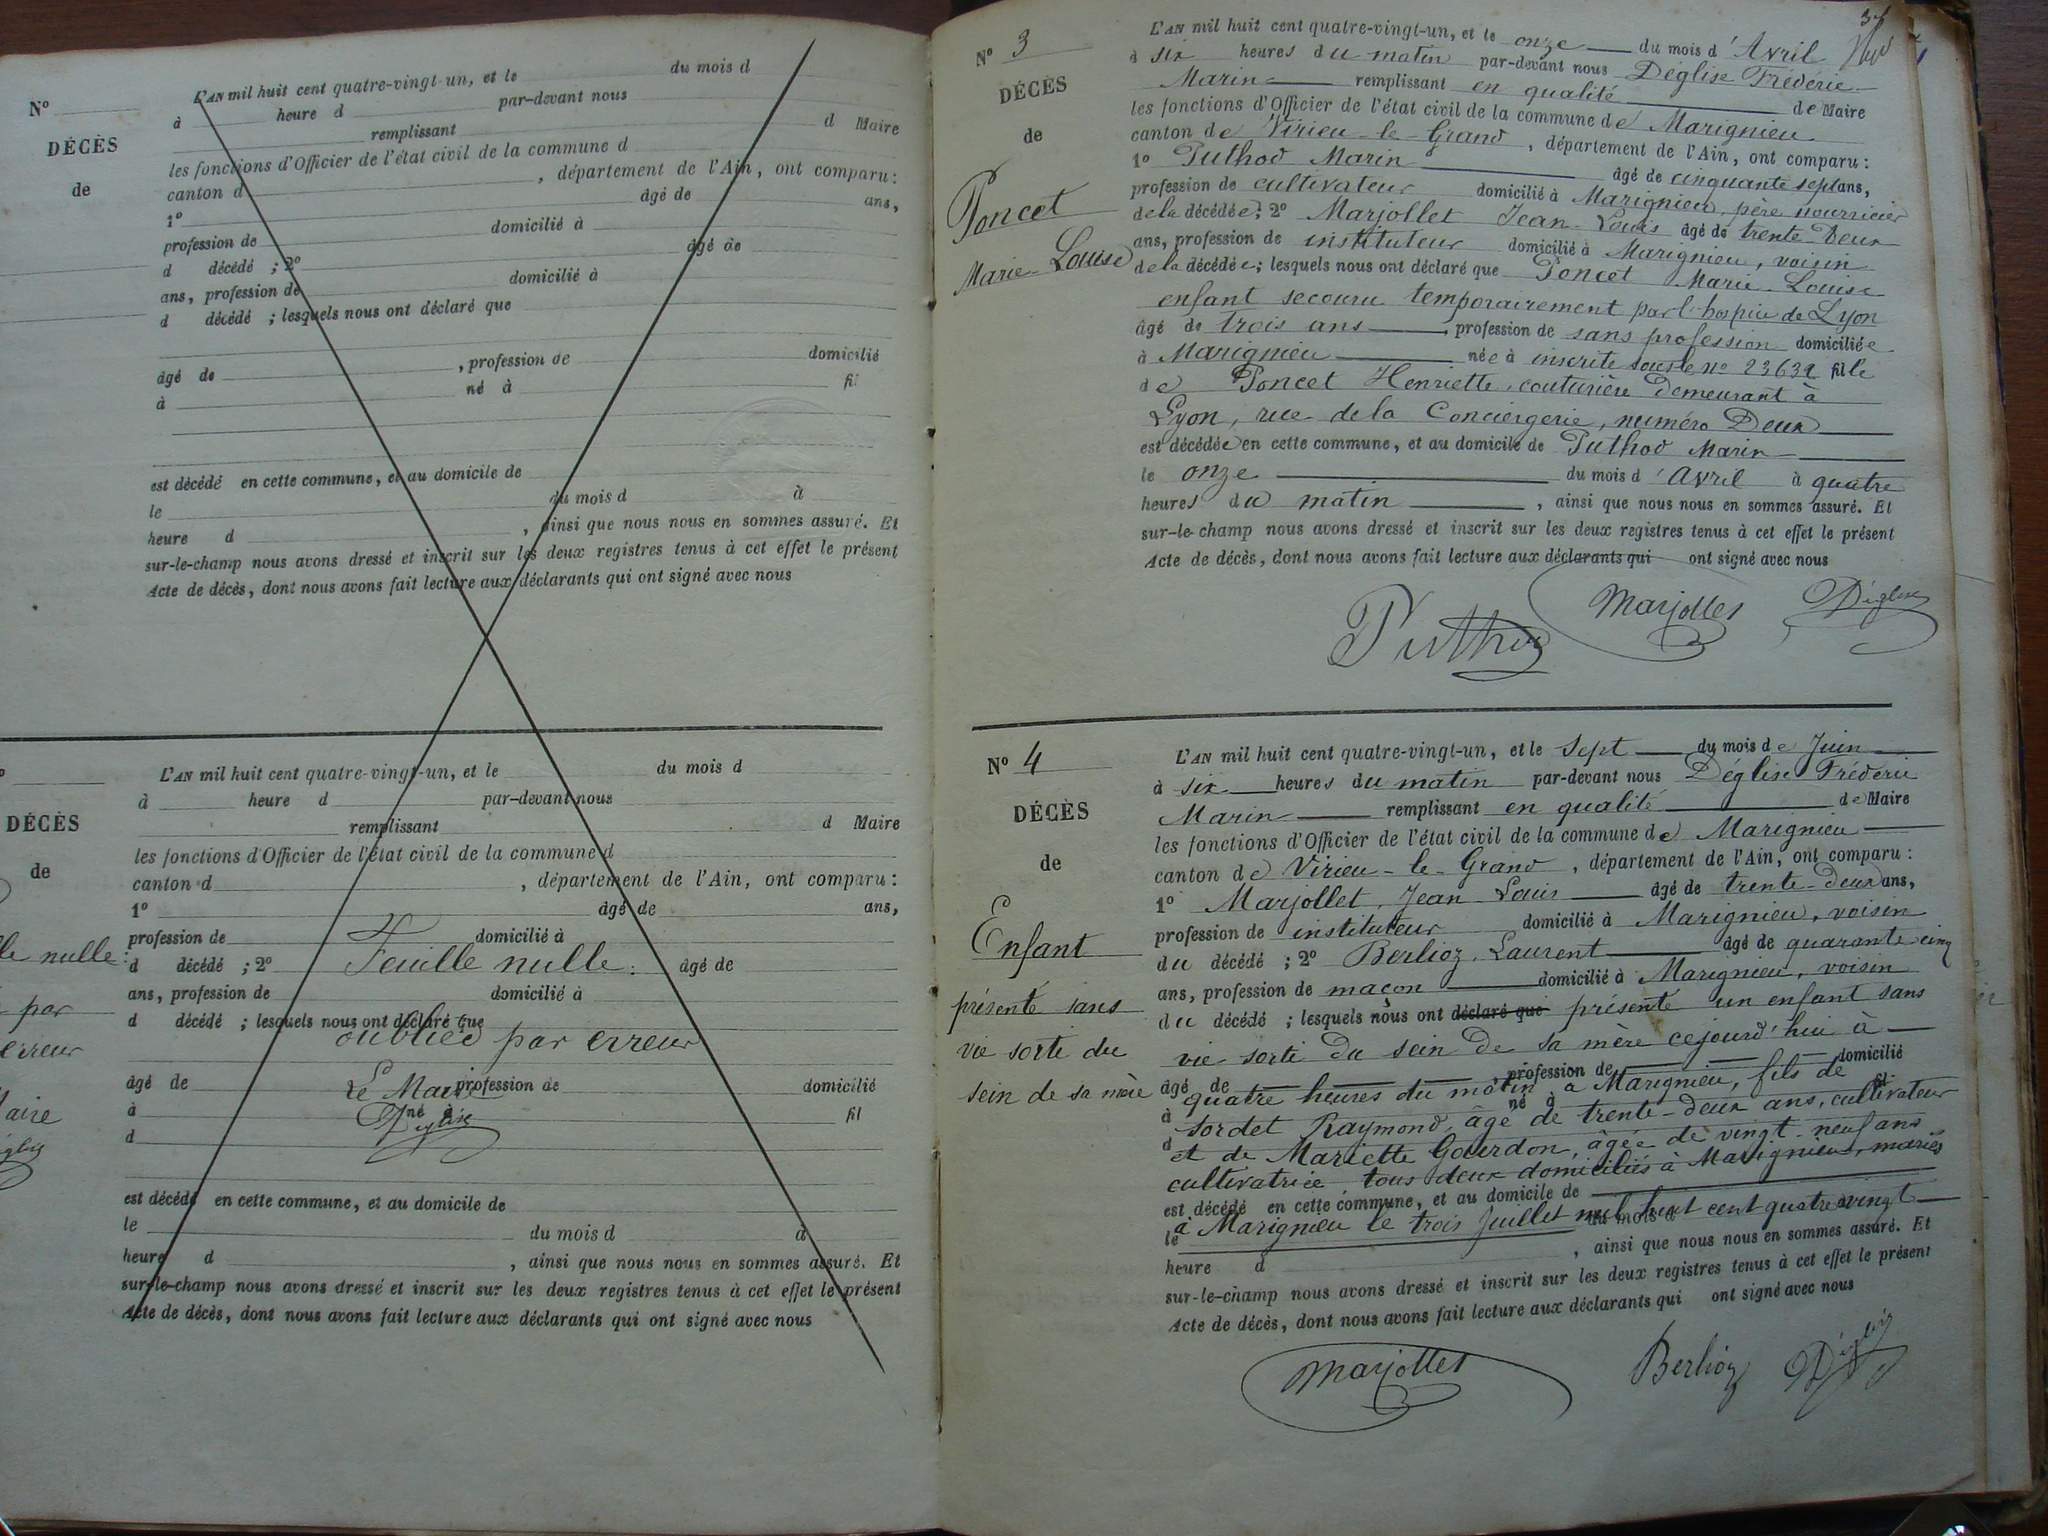 Nº
DÉCÈS
de
L'AN mil huit cent quatre-vingt-un, et le du mois d
à heure d par-devant nous
remplissant d Maire
les fonctions d'Officier de l'état civil de la commune d
canton d , département de l'Ain, ont comparu:
1º âgé de ans,
profession de domicilié à
d décédé ; 2º âgé de
ans, profession de domicilié à
d décédé ; lesquels nous ont déclaré que
âgé de , profession de domicilié
à né à fil
est décédé en cette commune, et au domicile de
le du mois d à
heure d , ainsi que nous nous en sommes assuré. Et
sur-le-champ nous avons dressé et inscrit sur les deux registres tenus à cet effet le présent
Acte de décès, dont nous avons fait lecture aux déclarants qui ont signé avec nous
DÉCÈS
de
nulle:
par
erreur
L'AN mil huit cent quatre-vingt-un, et le du mois d
à heure d par-devant nous
remplissant d Maire
les fonctions d'Officier de l'état civil de la commune d
canton d , département de l'Ain, ont comparu:
1º âgé de ans,
profession de domicilié à
d décédé ; 2º Feuille nulle: âgé de
ans, profession de domicilié à
d décédé ; lesquels nous ont déclaré que
oubliée par erreur
âgé de Le Maire profession de domicilié
à Déglise né à fil
d
est décédé en cette commune, et au domicile de
le du mois d à
heure d , ainsi que nous nous en sommes assuré. Et
sur-le-champ nous avons dressé et inscrit sur les deux registres tenus à cet effet le présent
Acte de décès, dont nous avons fait lecture aux déclarants qui ont signé avec nous
Nº 3
DÉCÈS
de
Poncet
Marie-Louise
L'AN mil huit cent quatre-vingt-un, et le onze du mois d'Avril
à six heures du matin par-devant nous Déglise Fréderic
Marin remplissant en qualité de Maire
les fonctions d'Officier de l'état civil de la commune de Marignieu
canton de Virieu-le-Grand, département de l'Ain, ont comparu:
1º Puthod Marin âgé de cinquante sept ans,
profession de cultivateur domicilié à Marignieu, père nourricier
de la décédée; 2º Marjollet Jean-Louis âgé de trente-Deux
ans, profession de instituteur domicilié à Marignieu, voisin
de la décédée; lesquels nous ont déclaré que Poncet Marie-Louise
enfant secouru temporairement par l'hospice de Lyon
âgé de trois ans, profession de sans profession domiciliée
à Marignieu née à inscrite sous le nº 23632 fille
de Poncet Henriette, couturière Demeurant à
Lyon, rue de la Conciergerie, numéro Deux
est décédée en cette commune, et au domicile de Puthod Marin
le onze du mois d'Avril à quatre
heures du matin, ainsi que nous nous en sommes assuré. Et
sur-le-champ nous avons dressé et inscrit sur les deux registres tenus à cet effet le présent
Acte de décès, dont nous avons fait lecture aux déclarants qui ont signé avec nous
Puthod Marjollet Déglise
Nº 4
DÉCÈS
de
Enfant
présenté sans
vie sorti du
sein de sa mère
L'AN mil huit cent quatre-vingt-un, et le sept du mois de Juin
à six heures du matin par-devant nous Déglise Fréderic
Marin remplissant en qualité de Maire
les fonctions d'Officier de l'état civil de la commune de Marignieu
canton de Virieu-le-Grand, département de l'Ain, ont comparu:
1º Marjollet, Jean-Louis âgé de trente-deux ans,
profession de instituteur domicilié à Marignieu, voisin
du décédé ; 2º Berlioz, Laurent âgé de quarante cinq
ans, profession de maçon domicilié à Marignieu, voisin
du décédé ; lesquels nous ont déclaré que présenté un enfant sans
vie sorti du sein de sa mère cejourd'hui à
âgé de profession de domicilié
quatre heures du matin à Marignieu, fils de
à né à fil
Sordet Raymond, âgé de trente-deux ans, cultivateur
d et de Mariette Gourdon, âgée de vingt-neuf ans
cultivatrice tous deux domiciliés à Marignieu, mariés
est décédé en cette commune, et au domicile de
à Marignieu le trois Juillet mil huit cent quatre vingt
le du mois d
heure d , ainsi que nous nous en sommes assuré. Et
sur-le-champ nous avons dressé et inscrit sur les deux registres tenus à cet effet le présent
Acte de décès, dont nous avons fait lecture aux déclarants qui ont signé avec nous
Marjollet Berlioz Déglise